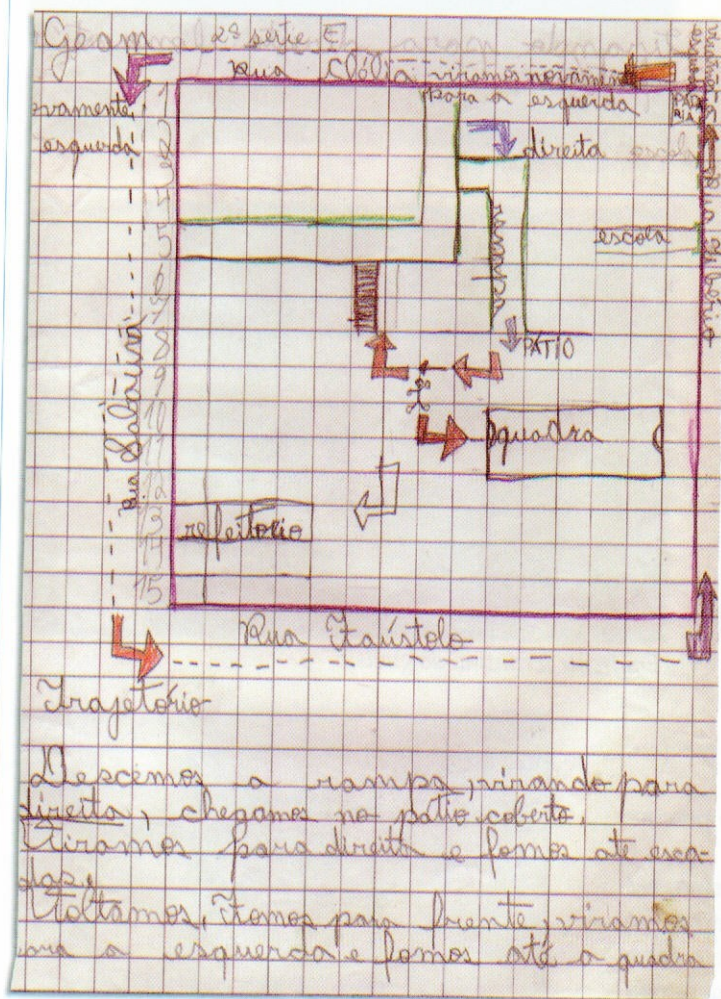 Geom 2ª série E
Rua Clélia viramos novamente
para a esquerda
vamente
esquerda
direita
escola
rampa
PÁTIO
quadra
refeitorio
1
2
3
4
5
6
7
8
9
10
11
12
13
14
15
Rua Sabaúna
Rua Tibério
Rua Faústolo
Trajetório
Descemos a rampa, virando para
direita, chegamos no pátio coberto.
Viramos para direita e fomos até esca-
das.
Voltamos, fomos para frente, viramos
ara a esquerda e fomos até a quadra